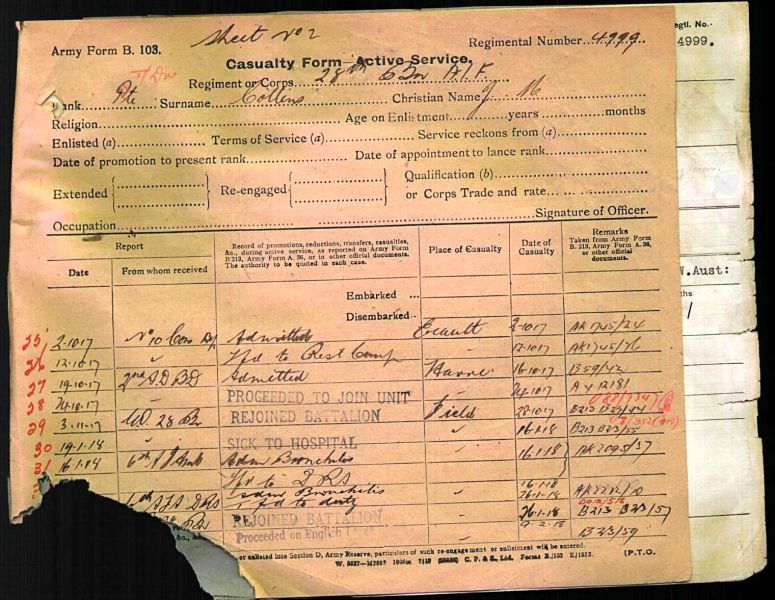 Sheet No 2
Regtl. No.
4999.
Army Form B. 103.
Regimental Number 4999
Casualty Form—Active Service.
Regiment or Corps 28th A.I.F.
Rank Pte Surname Collins Christian Name J. M
Religion Age on Enlistment years months
Enlisted (a) Terms of Service (a) Service reckons from (a)
Date of promotion to present rank Date of appointment to lance rank
Extended Re-engaged Qualification (b)
or Corps Trade and rate
Occupation Signature of Officer.
Report
Date From whom received
Record of promotions, reductions, transfers, casualties, &c., during active service, as reported on Army Form B 213, Army Form A. 36, or in other official documents. The authority to be quoted in each case.
Place of Casualty
Date of Casualty
Remarks
Taken from Army Form B. 213, Army Form A. 36, or other official documents.
W.Aust:
Embarked ...
Disembarked
2-10-17 No 10 Con Dp Admitted 2-10-17 AK1745/24
36 12-10-17 " Tfd to Rest Camp 12-10-17 AK1745/26
37 19-10-17 2nd A.D.B.D Admitted Havre 16-10-17 B59/42
38 24-10-17 " PROCEEDED TO JOIN UNIT 24-10-17 AY 12181
29 3-11-17 C.O. 28 Bn REJOINED BATTALION Field 28-10-17 B213 D23/44
30 19-1-18 " SICK TO HOSPITAL " 16-1-18 B213 D23/55
31 16-1-18 6th Adm Bronchitis 16-1-18 AK2095/37
Tfd to DRS 16-1-18
DRS Adm Bronchitis 26-1-18
tfd to duty
28 Bn REJOINED BATTALION 26-1-18 B213 B23/57
Proceeded on English Leave 9-2-18 B23/59
or enlisted into Section D, Army Reserve, particulars of such re-engagement or enlistment will be entered.
C. P. & S., Ltd. Forms B./103 E/1535. (P.T.O.